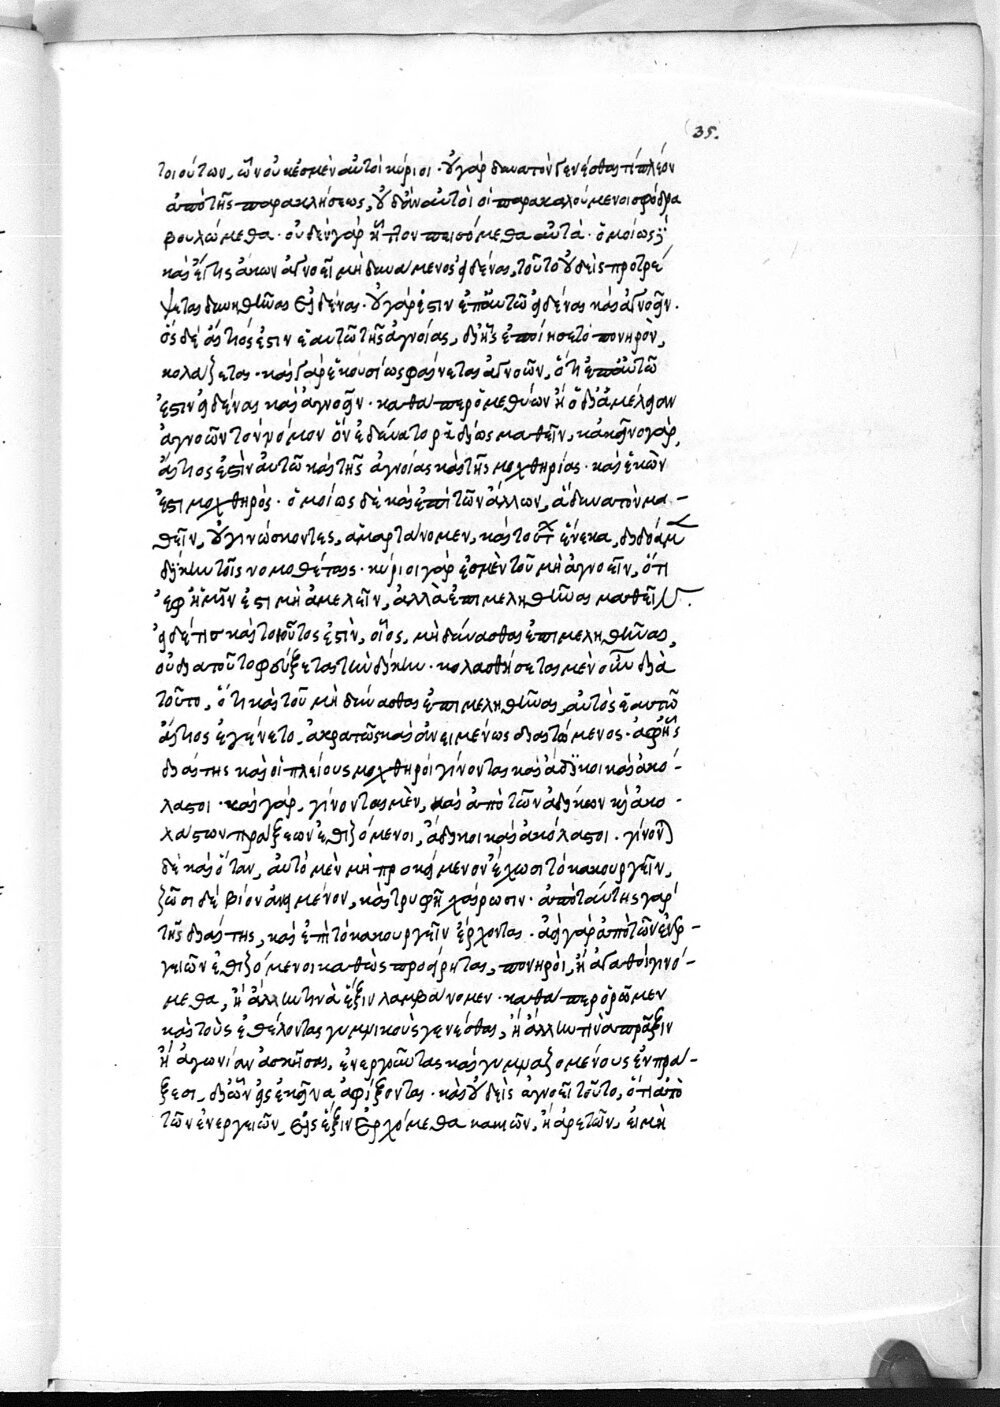 35.
τοιούτων, ὧν οὐκ ἐσμὲν αὐτοὶ κύριοι · οὐ γὰρ δυνατὸν γενέσθαι τί πλέον
ἀπὸ τῆς παρακλήσεως, οὐδ' ἂν αὐτοὶ οἱ παρακαλούμενοι σφόδρα
βουλώμεθα · οὐδὲν γὰρ ἧττον πεισόμεθα αὐτά · ὁμοίως
καὶ εἴ τις ἄκων ἀγνοεῖ μὴ δυνάμενος εἰδέναι, τοῦτο οὐδεὶς προτρέ
ψεται δυνηθῆναι εἰδέναι · οὐ γάρ ἐστιν ἐπ' αὐτῷ εἰδέναι καὶ ἀγνοεῖν ·
ὃς δὲ αἴτιός ἐστιν ἑαυτῷ τῆς ἀγνοίας, δι' ἧς ἐποίησε τὸ πονηρὸν,
κολάζεται · καὶ γὰρ ἑκουσίως φαίνεται ἀγνοῶν, ὅτι ἐπ' αὐτῷ
ἐστιν εἰδέναι καὶ ἀγνοεῖν · καθάπερ ὁ μεθύων ἢ ὁ δι' ἀμέλειαν
ἀγνοῶν τὸν νόμον ὃν ἐδύνατο ῥᾳδίως μαθεῖν, κἀκεῖνο γὰρ,
αἴτιος ἐστὶν αὑτῷ καὶ τῆς ἀγνοίας καὶ τῆς μοχθηρίας · καὶ ἑκών
ἐστι μοχθηρός · ὁμοίως δὲ καὶ ἐπὶ τῶν ἄλλων, ἃ δυνατὸν μα-
θεῖν, οὐ γινώσκοντες, ἁμαρτάνομεν, καὶ τούτου ἕνεκα, δίδομεν
δίκην τοῖς νομοθέταις · κύριοι γὰρ ἐσμὲν τοῦ μὴ ἀγνοεῖν, ὅτι
ἐφ' ἡμῖν ἐστι μὴ ἀμελεῖν, ἀλλὰ ἐπιμεληθῆναι μαθεῖν.
εἰ δέ τις καὶ τοιοῦτος ἐστὶν, οἷος, μὴ δύνασθαι ἐπιμεληθῆναι,
οὐ διὰ τοῦτο φεύξεται τὴν δίκην · κολασθήσεται μὲν οὖν διὰ
τοῦτο, ὅτι καὶ τοῦ μὴ δύνασθαι ἐπιμεληθῆναι, αὐτὸς ἑαυτῷ
αἴτιος ἐγένετο, ἀκρατῶς καὶ ἀνειμένως διαιτώμενος · ἀφ' ἧς
διαίτης καὶ οἱ πλείους μοχθηροὶ γίνονται καὶ ἄδικοι καὶ ἀκό-
λαστοι · καὶ γὰρ, γίνονται μὲν, καὶ ἀπὸ τῶν ἀδίκων καὶ ἀκο-
λάστων πράξεων ἐθιζόμενοι, ἄδικοι καὶ ἀκόλαστοι · γίνονται
δὲ καὶ ὅταν, αὐτὸ μὲν μὴ προκείμενον ἔχωσι τὸ κακουργεῖν,
ζῶσι δὲ βίον ἀνειμένον, καὶ τρυφῇ χαίρωσιν · ἀπὸ ταύτης γὰρ
τῆς διαίτης, καὶ ἐπὶ τὸ κακουργεῖν ἔρχονται · ἀεὶ γὰρ ἀπὸ τῶν ἐνερ-
γειῶν ἐθιζόμενοι καθὼς προείρηται, πονηροὶ, ἢ ἀγαθοὶ γινό-
μεθα, ἢ ἄλλην τινὰ ἕξιν λαμβάνομεν · καθάπερ ὁρῶμεν
καὶ τοὺς ἐθέλοντας γυμνικοὺς γενέσθαι, ἢ ἄλλην τινὰ πρᾶξιν
ἢ ἀγωνίαν ἀσκῆσαι, ἐνεργοῦντας καὶ γυμναζομένους ἐν πρά-
ξεσι, δι' ὧν εἰς ἐκεῖνα ἀφίξονται · καὶ οὐδεὶς ἀγνοεῖ τοῦτο, ὅτι ἀπὸ
τῶν ἐνεργειῶν, εἰς ἕξιν ἐρχόμεθα κακιῶν, ἢ ἀρετῶν, εἰ μὴ